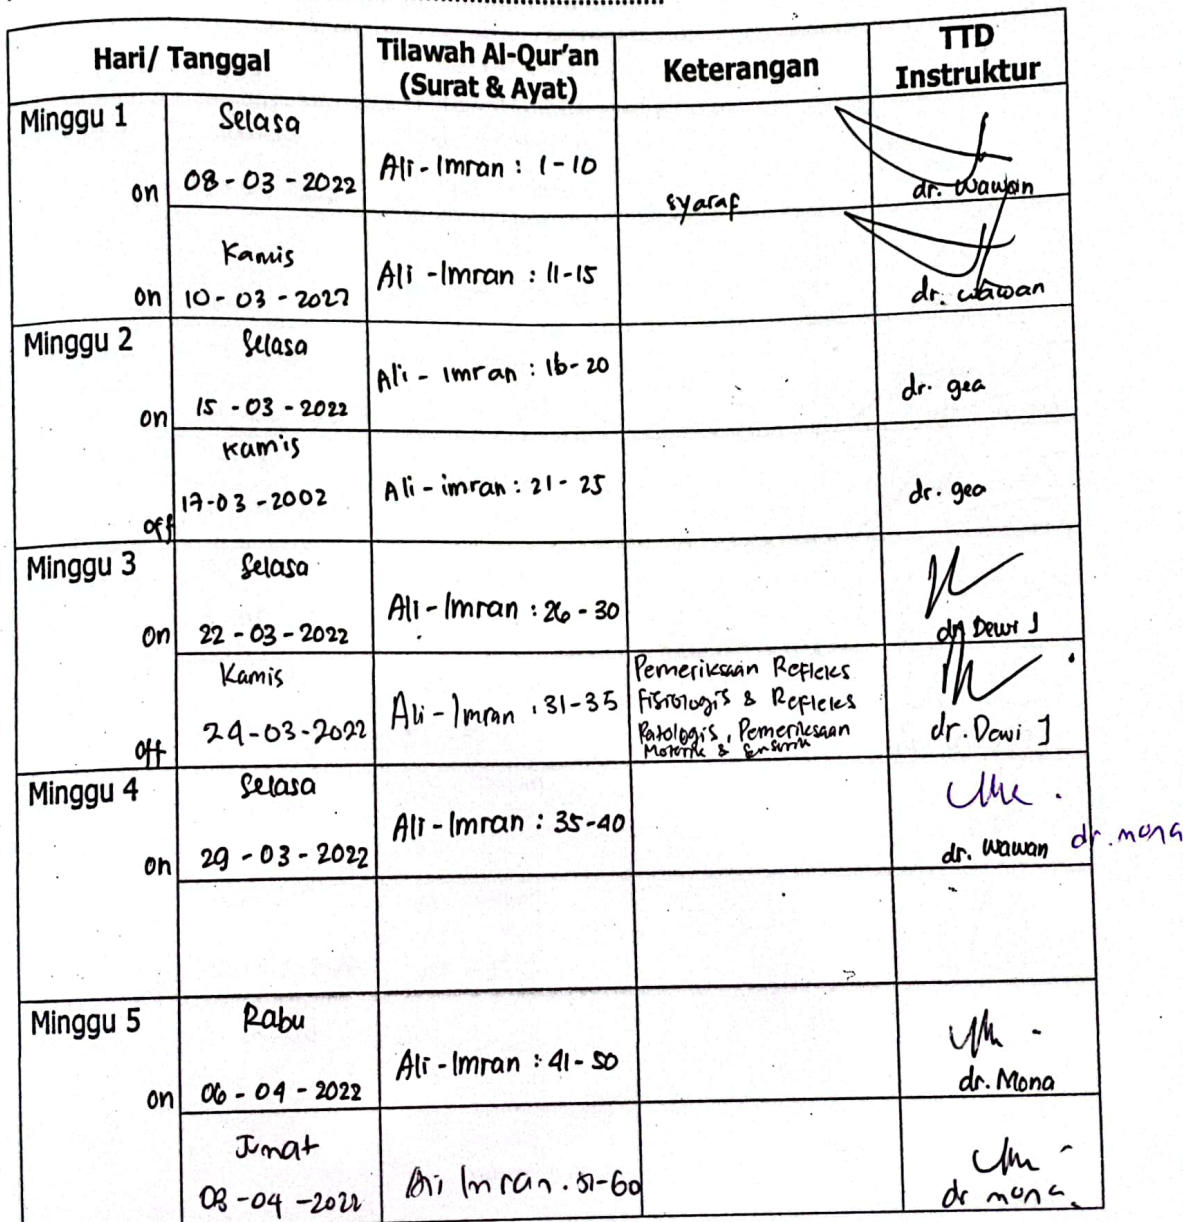 Hari/ Tanggal
Tilawah Al-Qur'an
(Surat & Ayat)
Keterangan
TTD
Instruktur
Minggu 1
Selasa
on
08-03-2022
Ali-Imran : 1-10
syaraf
dr. Wawan
Kamis
on
10-03-2022
Ali-Imran : 11-15
dr. Wawan
Minggu 2
Selasa
on
15-03-2022
Ali-Imran : 16-20
dr. gea
Kamis
off
17-03-2002
Ali-imran : 21-25
dr. gea
Minggu 3
Selasa
on
22-03-2022
Ali-Imran : 26-30
dr Dewi J
Kamis
off
24-03-2022
Ali-Imran : 31-35
Pemeriksaan Refleks
Fisiologis & Refleks
Patologis, Pemeriksaan
Motorik & Sensorik
dr. Dewi J
Minggu 4
Selasa
on
29-03-2022
Ali-Imran : 35-40
dr. wawan
dr. mona
Minggu 5
Rabu
on
06-04-2022
Ali-Imran : 41-50
dr. Mona
Jumat
08-04-2022
Ali Imran . 51-60
dr mona